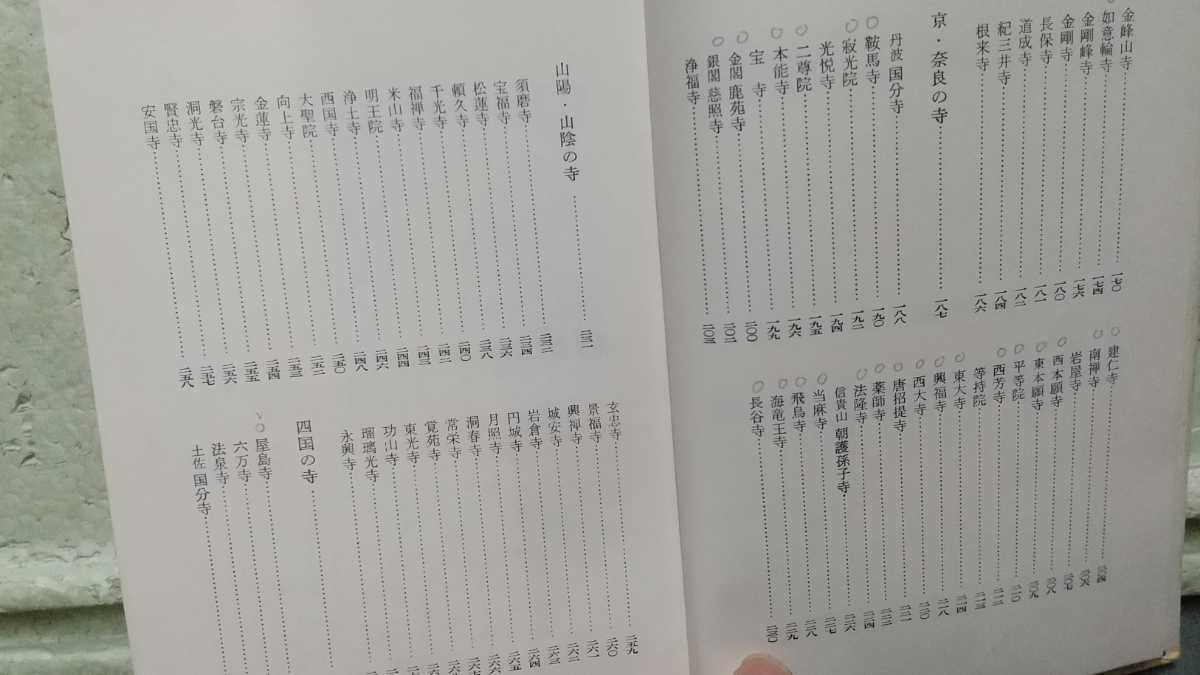 金峰山寺……一七〇
如意輪寺……一七四
金剛峰寺……一七六
金剛寺……一八〇
長保寺……一八一
道成寺……一八二
紀三井寺……一八四
根来寺……一八六
京・奈良の寺……一八七
丹波 国分寺……一八八
鞍馬寺……一九〇
寂光院……一九二
光悦寺……一九四
二尊院……一九五
本能寺……一九六
宝寺……一九九
金閣 鹿苑寺……二〇〇
銀閣 慈照寺……二〇二
浄福寺……二〇三
建仁寺……二〇四
南禅寺
岩屋寺……二〇七
西本願寺……二〇八
東本願寺……二〇九
平等院……二一〇
西芳寺……二一二
等持院……二一三
東大寺……二一四
興福寺……二一八
西大寺……二二〇
唐招提寺……二二一
薬師寺……二二二
法隆寺……二二四
信貴山 朝護孫子寺……二二六
当麻寺……二二七
飛鳥寺……二二八
海竜王寺……二二九
長谷寺……二三〇
山陽・山陰の寺……二三一
須磨寺……二三二
宝福寺……二三四
松蓮寺……二三六
頼久寺……二三八
千光寺……二四〇
福禅寺……二四二
米山寺……二四三
明王院……二四四
浄土寺……二四六
西国寺……二四八
大聖院……二五〇
向上寺……二五二
金蓮寺……二五三
宗光寺……二五四
磐台寺……二五五
洞光寺……二五六
賢忠寺……二五七
安国寺……二五八
玄忠寺……二五九
景福寺……二六〇
興禅寺……二六一
城安寺……二六二
岩倉寺……二六三
円城寺……二六四
月照寺……二六五
洞春寺
常栄寺
覚苑寺
東光寺
功山寺
瑠璃光寺
永興寺
四国の寺
屋島寺
六万寺
法泉寺
土佐 国分寺